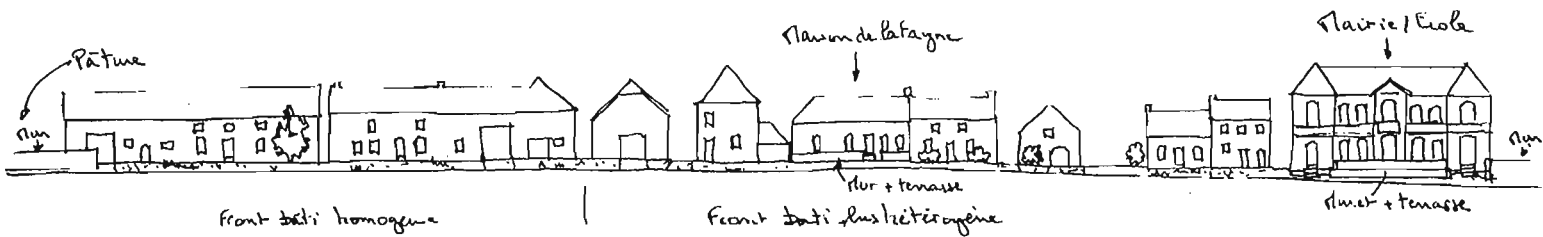 Pâture
Mur
Maison de la fagne
Mairie / Ecole
Mur
Mur + terrasse
Muret + terrasse
Front bâti homogène
Front bâti plus hétérogène